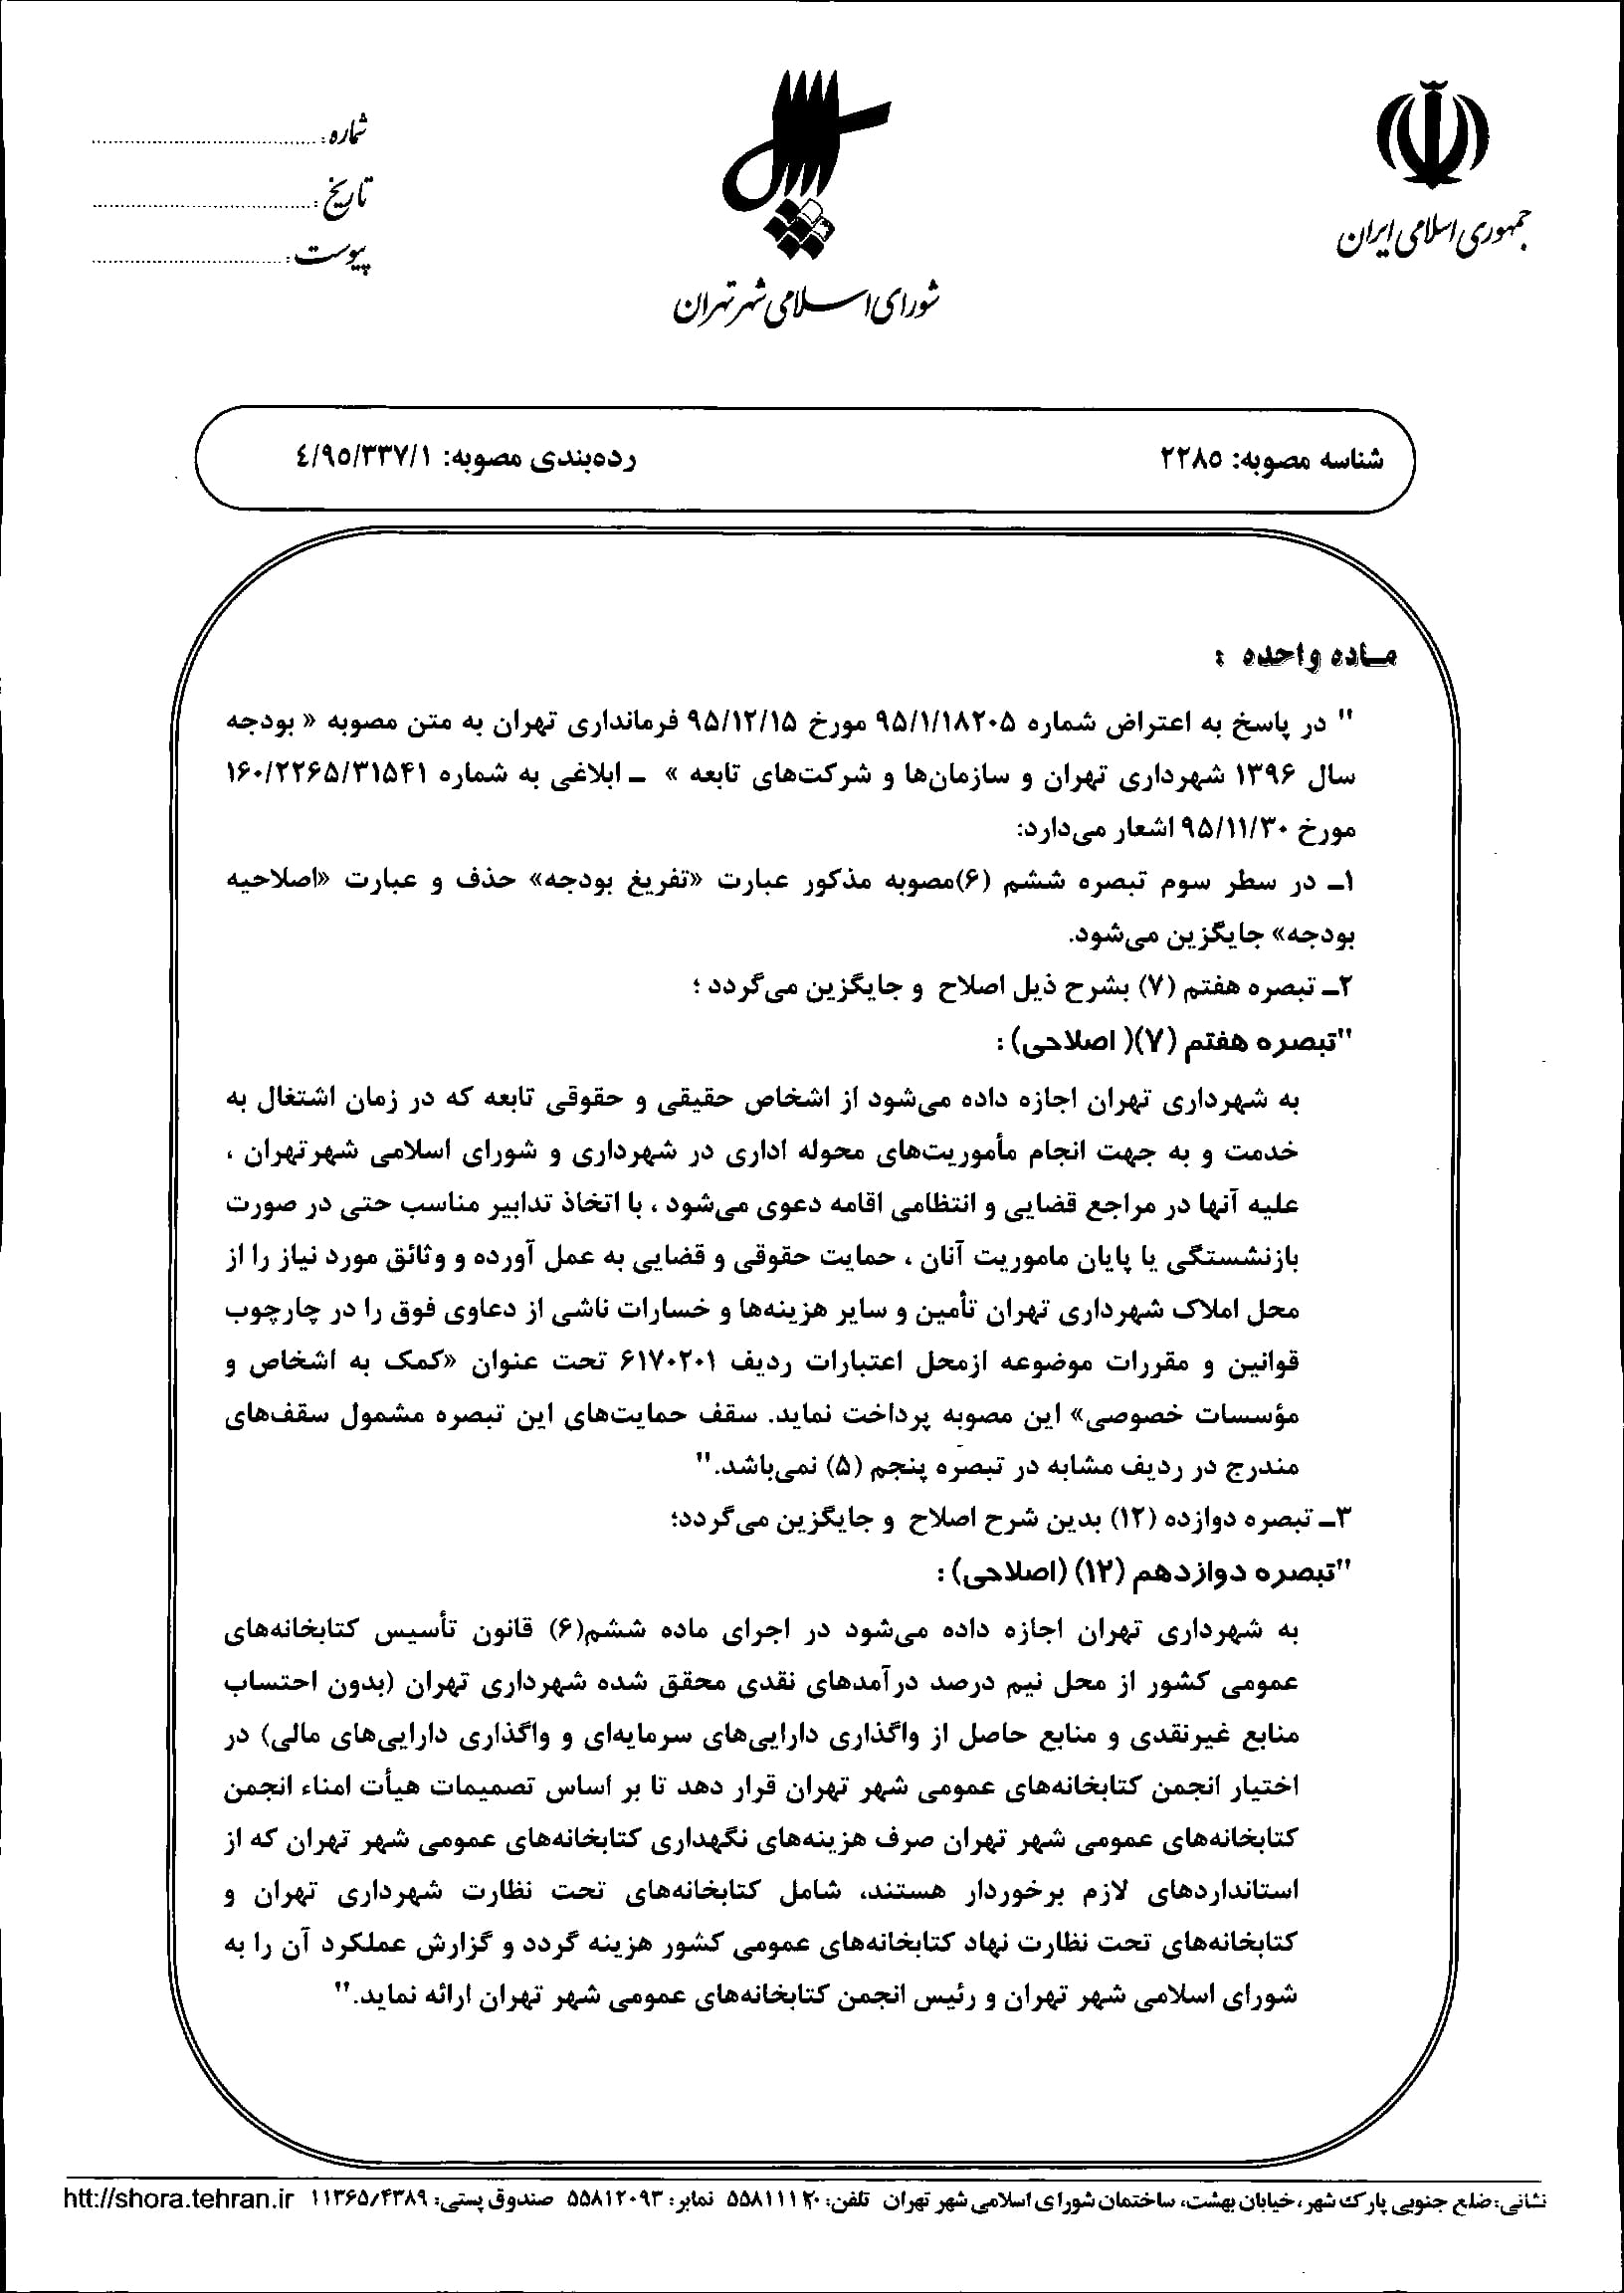 جمهوری اسلامی ایران
شورای اسلامی شهر تهران
شماره:
تاریخ:
پیوست:
شناسه مصوبه: ۲۲۸۵
رده‌بندی مصوبه: ٤/۹۵/۳۳۷/۱
ماده واحده :
" در پاسخ به اعتراض شماره ۹۵/۱/۱۸۲۰۵ مورخ ۹۵/۱۲/۱۵ فرمانداری تهران به متن مصوبه « بودجه
سال ۱۳۹۶ شهرداری تهران و سازمان‌ها و شرکت‌های تابعه » ـ ابلاغی به شماره ۱۶۰/۲۲۶۵/۳۱۵۴۱
مورخ ۹۵/۱۱/۳۰ اشعار می‌دارد:
۱ـ در سطر سوم تبصره ششم (۶)مصوبه مذکور عبارت «تفریغ بودجه» حذف و عبارت «اصلاحیه
بودجه» جایگزین می‌شود.
۲ـ تبصره هفتم (۷) بشرح ذیل اصلاح و جایگزین می‌گردد ؛
"تبصره هفتم (۷)( اصلاحی) :
به شهرداری تهران اجازه داده می‌شود از اشخاص حقیقی و حقوقی تابعه که در زمان اشتغال به
خدمت و به جهت انجام مأموریت‌های محوله اداری در شهرداری و شورای اسلامی شهرتهران ،
علیه آنها در مراجع قضایی و انتظامی اقامه دعوی می‌شود ، با اتخاذ تدابیر مناسب حتی در صورت
بازنشستگی یا پایان ماموریت آنان ، حمایت حقوقی و قضایی به عمل آورده و وثائق مورد نیاز را از
محل املاک شهرداری تهران تأمین و سایر هزینه‌ها و خسارات ناشی از دعاوی فوق را در چارچوب
قوانین و مقررات موضوعه ازمحل اعتبارات ردیف ۶۱۷۰۲۰۱ تحت عنوان «کمک به اشخاص و
مؤسسات خصوصی» این مصوبه پرداخت نماید. سقف حمایت‌های این تبصره مشمول سقف‌های
مندرج در ردیف مشابه در تبصره پنجم (۵) نمی‌باشد."
۳ـ تبصره دوازده (۱۲) بدین شرح اصلاح و جایگزین می‌گردد؛
"تبصره دوازدهم (۱۲) (اصلاحی) :
به شهرداری تهران اجازه داده می‌شود در اجرای ماده ششم(۶) قانون تأسیس کتابخانه‌های
عمومی کشور از محل نیم درصد درآمدهای نقدی محقق شده شهرداری تهران (بدون احتساب
منابع غیرنقدی و منابع حاصل از واگذاری دارایی‌های سرمایه‌ای و واگذاری دارایی‌های مالی) در
اختیار انجمن کتابخانه‌های عمومی شهر تهران قرار دهد تا بر اساس تصمیمات هیأت امناء انجمن
کتابخانه‌های عمومی شهر تهران صرف هزینه‌های نگهداری کتابخانه‌های عمومی شهر تهران که از
استانداردهای لازم برخوردار هستند، شامل کتابخانه‌های تحت نظارت شهرداری تهران و
کتابخانه‌های تحت نظارت نهاد کتابخانه‌های عمومی کشور هزینه گردد و گزارش عملکرد آن را به
شورای اسلامی شهر تهران و رئیس انجمن کتابخانه‌های عمومی شهر تهران ارائه نماید."
نشانی: ضلع جنوبی پارک شهر، خیابان بهشت، ساختمان شورای اسلامی شهر تهران تلفن: نمابر: ۵۵۸۱۲۰۹۳ صندوق پستی: ۱۱۳۶۵/۴۳۸۹ htt://shora.tehran.ir